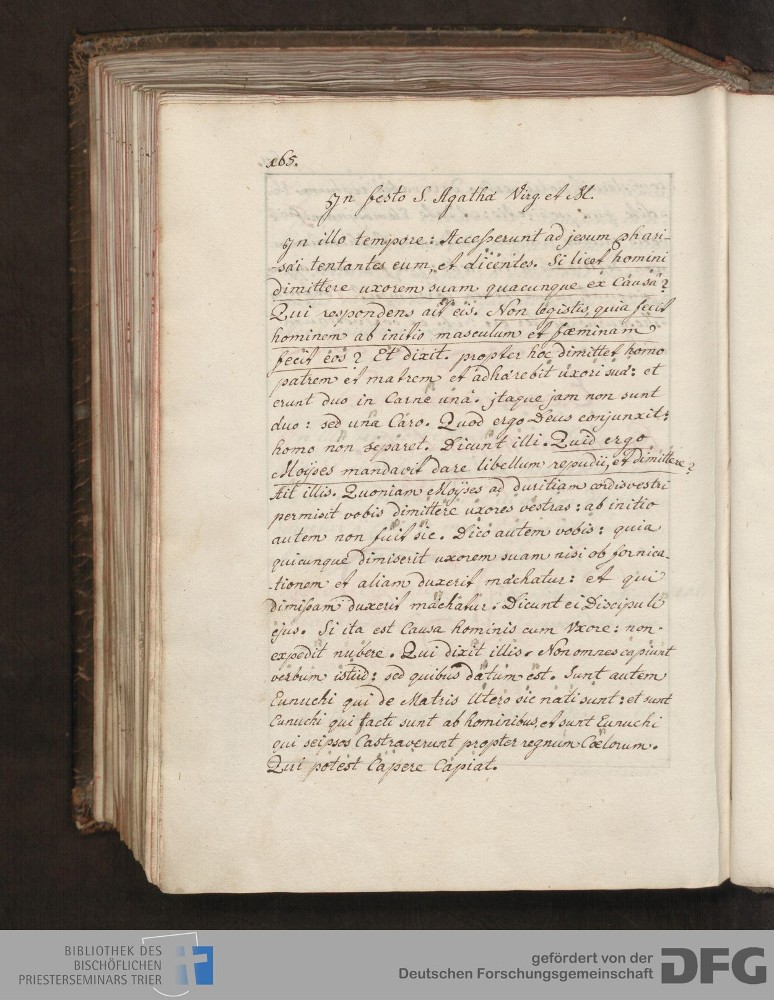 165.
Jn festo S. Agathæ Virg. et M.
Jn illo tempore: Accesserunt ad jesum phari-
-sæi tentantes eum, et dicentes. Si licet homini
dimittere uxorem suam quacunque ex Causa?
Qui respondens ait eis. Non legistis, quia fecit
hominem ab initio masculum et fæminam
fecit eos? Et dixit. propter hoc dimittet homo
patrem et matrem et adhærebit uxori suæ: et
erunt duo in Carne una. jtaque jam non sunt
duo: sed una Caro. Quod ergo Deus conjunxit:
homo non separet. Dicunt illi. Quid ergo
Moÿses mandavit dare libellum repudii, et dimittere?
Ait illis. Quoniam Moÿses ad duritiam cordis vestri
permisit vobis dimittere uxores vestras: ab initio
autem non fuit sic. Dico autem vobis: quia
quicunque dimiserit uxorem suam nisi ob fornica-
-tionem et aliam duxerit mæchatur: et qui
dimissam duxerit mæchatur. Dicunt ei Discipuli
ejus. Si ita est Causa hominis cum Vxore: non
expedit nubere. Qui dixit illis. Non omnes capiunt
verbum istud: sed quibus datum est. Sunt autem
Eunuchi qui de Matris Utero sic nati sunt: et sunt
Eunuchi qui facti sunt ab hominibus, et sunt Eunuchi
qui seipsos Castraverunt propter regnum Cœlorum.
Qui potest Capere Capiat.
BIBLIOTHEK DES
BISCHÖFLICHEN
PRIESTERSEMINARS TRIER
gefördert von der
Deutschen Forschungsgemeinschaft DFG